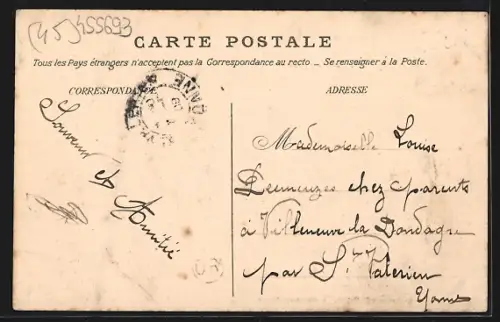 (45) 455693
CARTE POSTALE
Tous les Pays étrangers n'acceptent pas la Correspondance au recto — Se renseigner à la Poste.
CORRESPONDANCE
ADRESSE
Souvenir et Amitié
Mademoiselle Louise
chez parents
à Villeneuve la Dondagre
par St Valérien
Yonne